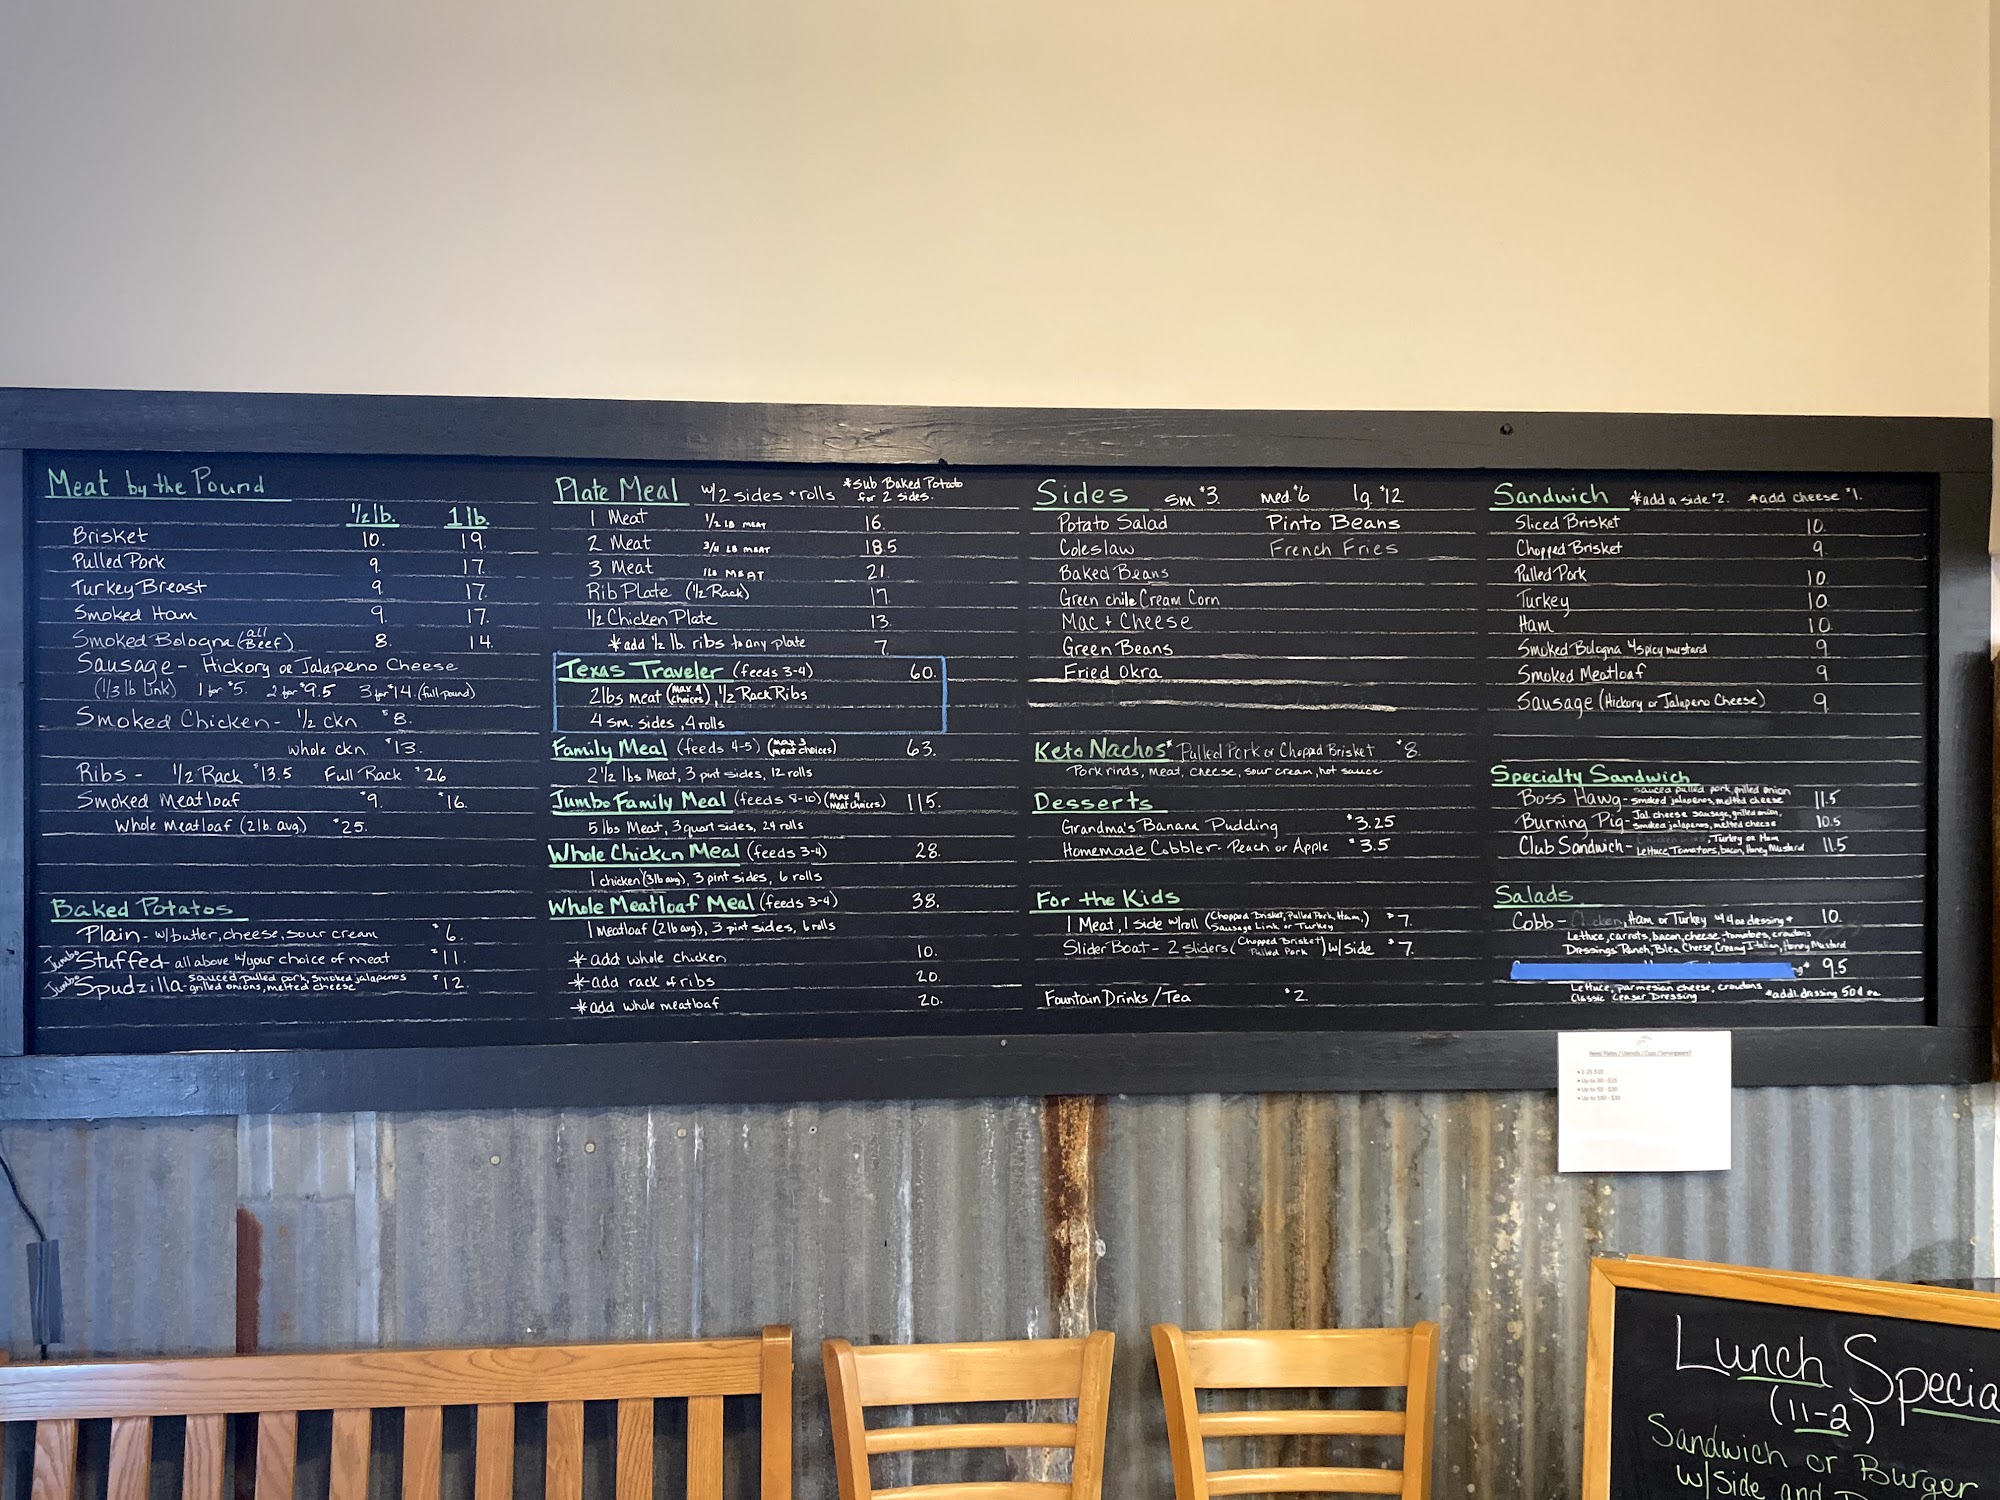 Meat by the Pound
1/2 lb. 1 lb.
Brisket 10. 19.
Pulled Pork 9. 17.
Turkey Breast 9 17.
Smoked Ham 9. 17.
Smoked Bologna (all Beef) 8. 14.
Sausage - Hickory or Jalapeno Cheese
(1/3 lb link) 1 for $5. 2 for $9.5 3 for $14. (full pound)
Smoked Chicken - 1/2 ckn. $8.
whole ckn. $13.
Ribs - 1/2 Rack $13.5 Full Rack $26
Smoked Meatloaf $9. $16.
Whole Meatloaf (2lb. avg.) $25.
Baked Potatos
Plain - w/butter, cheese, sour cream $6.
Jumbo Stuffed - all above w/your choice of meat $11.
Jumbo Spudzilla - sauced pulled pork, smoked jalapenos $12.
grilled onions, melted cheese
Plate Meal w/2 sides + rolls *Sub Baked Potato
for 2 sides.
1 Meat 1/2 LB MEAT 16.
2 Meat 3/4 LB MEAT 18.5
3 Meat 1LB MEAT 21.
Rib Plate (1/2 Rack) 17
1/2 Chicken Plate 13.
*add 1/2 lb. ribs to any plate 7.
Texas Traveler (feeds 3-4) 60.
2lbs meat (max 4 choices), 1/2 Rack Ribs
4 sm. sides, 4 rolls
Family Meal (feeds 4-5) (max 3 meat choices) 63.
2 1/2 lbs Meat, 3 pint sides, 12 rolls
Jumbo Family Meal (feeds 8-10) (max 4 meat choices) 115.
5 lbs Meat, 3 quart sides, 24 rolls
Whole Chicken Meal (feeds 3-4) 28.
1 chicken (3lb avg), 3 pint sides, 6 rolls
Whole Meatloaf Meal (feeds 3-4) 38.
1 Meatloaf (2lb avg), 3 pint sides, 6 rolls
*add whole chicken 10.
*add rack of ribs 20.
*add whole meatloaf 20.
Sides sm $3. med. $6 lg $12
Potato Salad Pinto Beans
Coleslaw French Fries
Baked Beans
Green chile Cream Corn
Mac + Cheese
Green Beans
Fried Okra
Keto Nachos* Pulled Pork or Chopped Brisket $8.
Pork rinds, meat, cheese, sour cream, hot sauce
Desserts
Grandma's Banana Pudding $3.25
Homemade Cobbler - Peach or Apple $3.5
For the Kids
1 Meat, 1 side w/roll (Chopped Brisket, Pulled Pork, Ham, $7.
Sausage Link or Turkey)
Slider Boat - 2 sliders (Chopped Brisket Pulled Pork) w/Side $7.
Fountain Drinks/Tea $2
Sandwich *add a side $2. *add cheese $1.
Sliced Brisket 10.
Chopped Brisket 9.
Pulled Pork 10.
Turkey 10.
Ham 10.
Smoked Bologna w/spicy mustard 9
Smoked Meatloaf 9
Sausage (Hickory or Jalapeno Cheese) 9
Specialty Sandwich
Boss Hawg - sauced pulled pork, grilled onion 11.5
smoked jalapenos, melted cheese
Burning Pig - Jal. cheese sausage, grilled onion, 10.5
smoked jalapenos, melted cheese
Club Sandwich - , Turkey or Ham 11.5
Lettuce Tomatoes, bacon, Honey Mustard
Salads
Cobb - Chicken, Ham or Turkey w/4oz dressing* 10.
Lettuce, carrots, bacon, cheese, tomatoes, croutons
Dressings Ranch, Bleu Cheese, Creamy Italian, Honey Mustard
9.5
Lettuce, parmesan cheese, croutons
Classic Ceasar Dressing *addl. dressing 50¢ ea.
Need Plates / Utensils / Cups / Servingware?
• 1-25 $10
• Up to 30 - $15
• Up to 50 - $20
• Up to 100 - $30
Lunch Specia
(11-2)
Sandwich or Burger
w/Side and